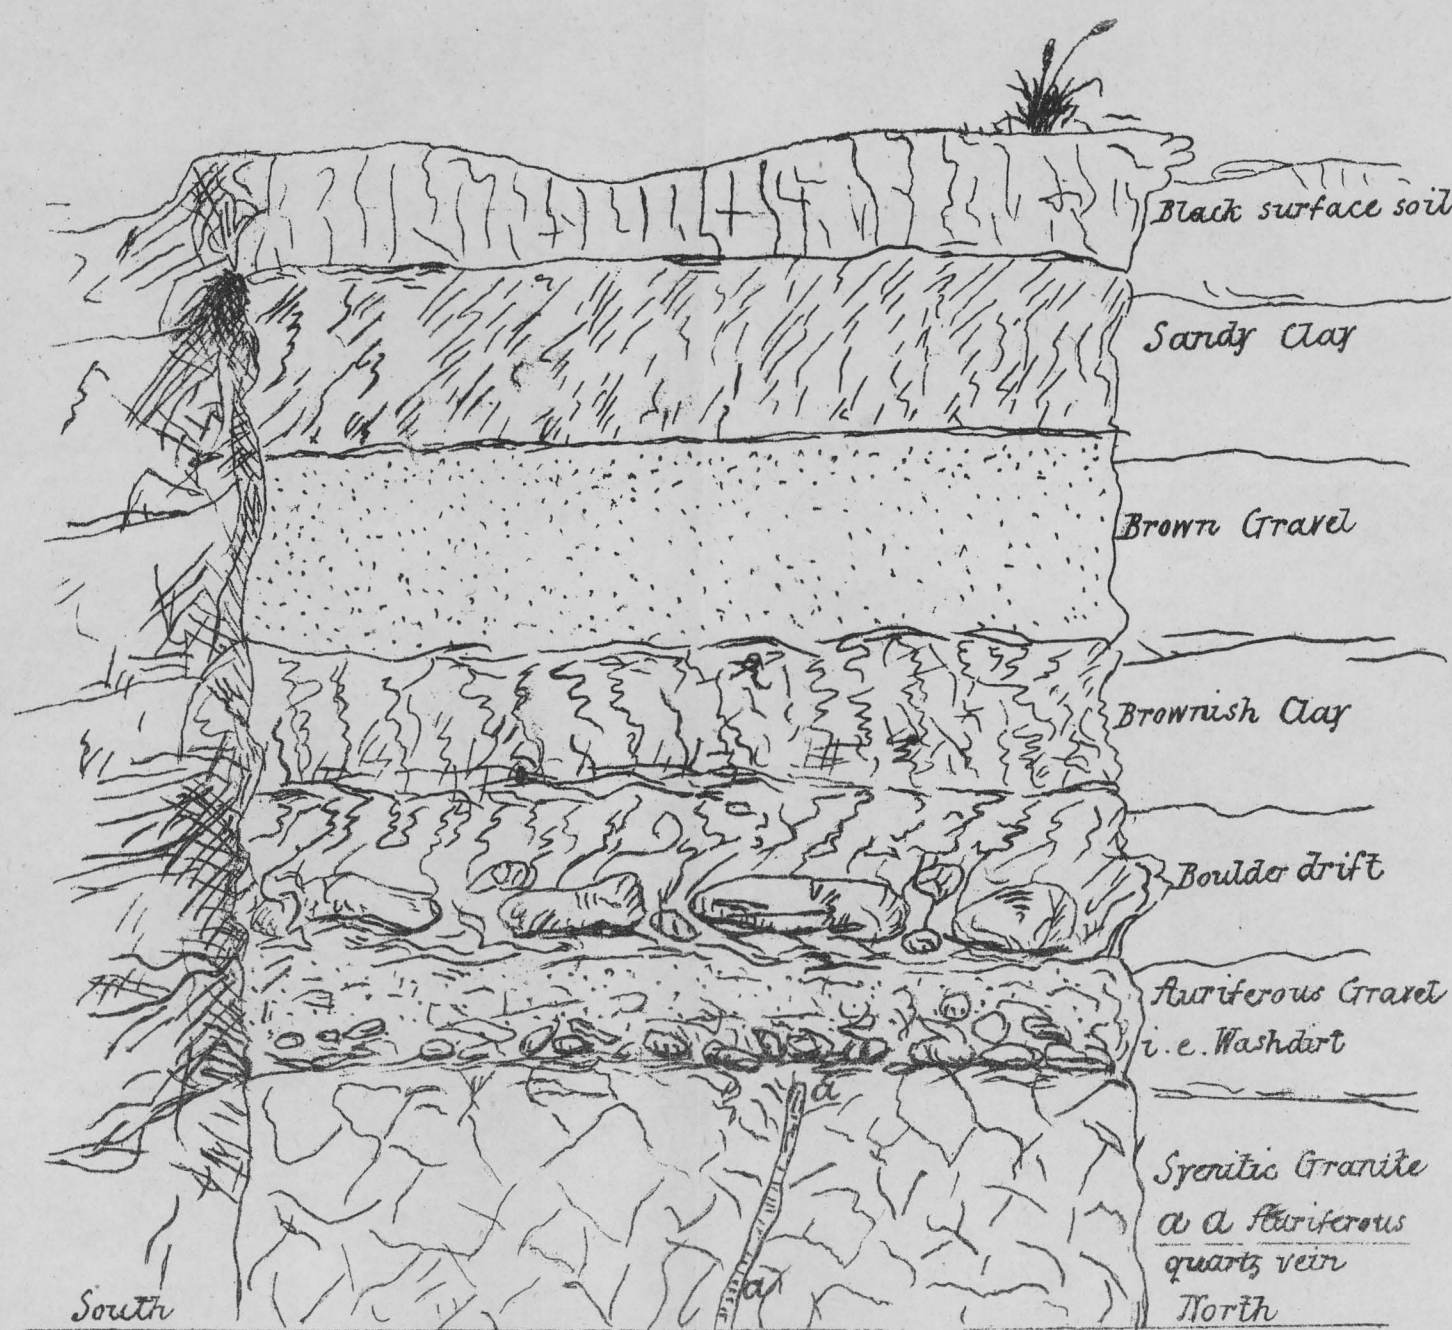 Black surface soil
Sandy Clay
Brown Gravel
Brownish Clay
Boulder drift
Auriferous Gravel
i.e. Washdirt
a
Syenitic Granite
a a Auriferous
quartz vein
a
South
North